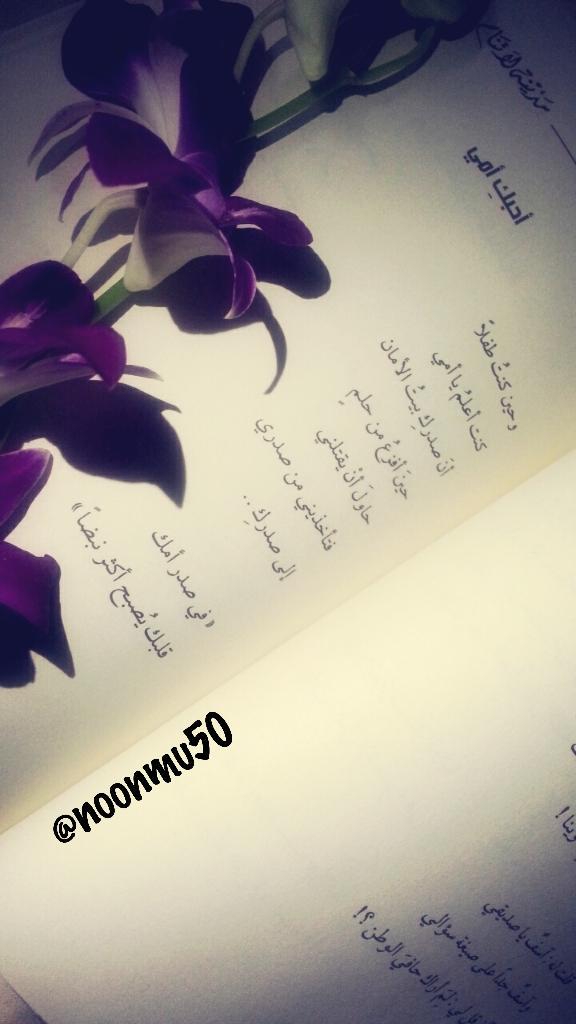 أحبك أمي
وحين كنتُ طفلاً
كنت أعلمُ يا أمي
أنّ صدركِ بيتُ الأمان
حينَ أفزعُ من حلمٍ
حاولَ أنْ يقتلني
فتأخذيني من صدري
إلى صدركِ ..
«في صدر أمك
قلبكَ يُصبح أكثر نبضاً»
@noonmu50
آسف يا صديقي
وآسف جداً على صيغة سؤالي
لِمَ أراك حافيَ الوطن؟!